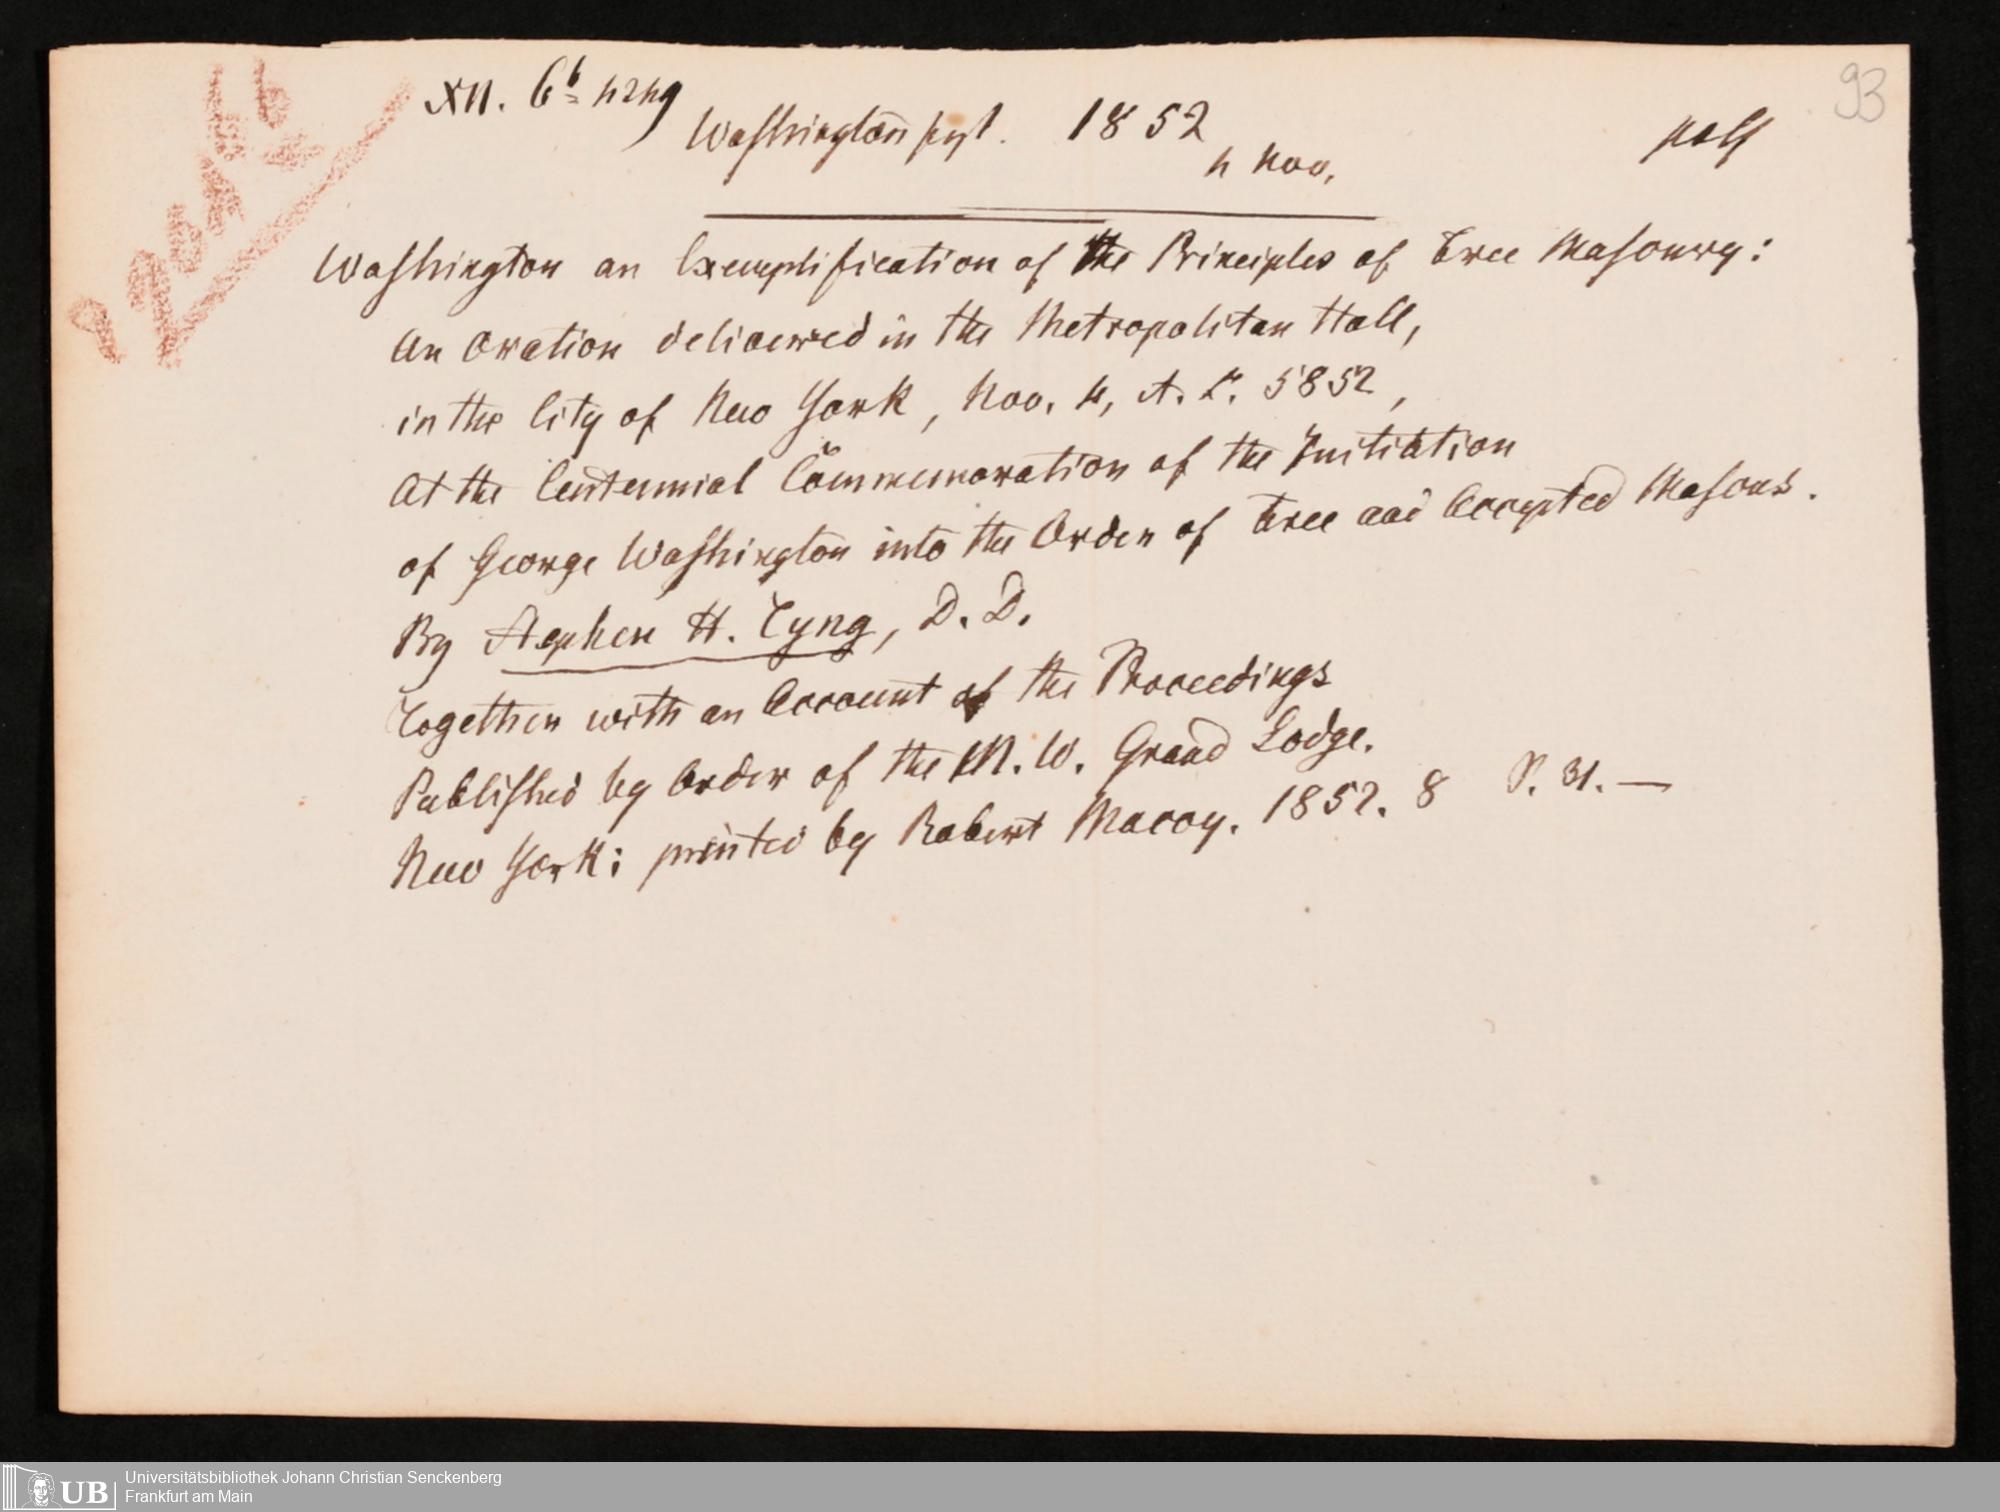 93
XII. 6b 4249
Washington 1852
4 Nov.
Washington an Exemplification of the Principles of Free Masonry:
An Oration delivered in the Metropolitan Hall,
in the City of New York, Nov. 4, A. L. 5852,
At the Centennial Commemoration of the Initiation
of George Washington into the Order of Free and Accepted Masons.
By Stephen H. Tyng, D. D.
Together with an Account of the Proceedings
Published by Order of the M. W. Grand Lodge.
New York: printed by Robert Macoy. 1852. 8 P. 31. —
UB Universitätsbibliothek Johann Christian Senckenberg
Frankfurt am Main